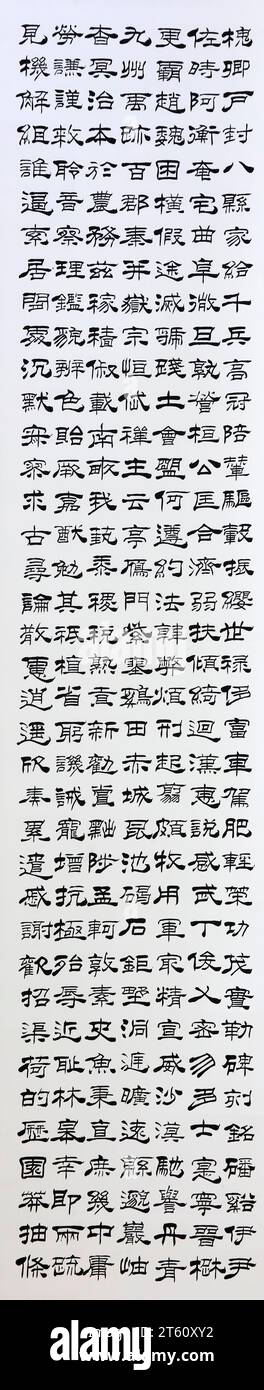 槐卿戶封八縣家給千兵高冠陪輦驅轂振纓世祿侈富車駕肥輕策功茂實勒碑刻銘磻谿伊尹
佐時阿衡奄宅曲阜微旦孰營桓公匡合濟弱扶傾綺迴漢惠說感武丁俊乂密勿多士寔寧晉楚
更霸趙魏困橫假途滅虢踐土會盟何遵約法韓弊煩刑起翦頗牧用軍最精宣威沙漠馳譽丹青
九州禹跡百郡秦并嶽宗恒岱禪主云亭雁門紫塞雞田赤城昆池碣石鉅野洞庭曠遠緜邈巖岫
杳冥治本於農務茲稼穡俶載南畝我藝黍稷稅熟貢新勸賞黜陟孟軻敦素史魚秉直庶幾中庸
勞謙謹敕聆音察理鑑貌辨色貽厥嘉猷勉其祗植省躬譏誡寵增抗極殆辱近恥林皋幸即兩疏
見機解組誰逼索居閑處沉默寂寥求古尋論散慮逍遙欣奏累遣慼謝歡招渠荷的歷園莽抽條
alamy
alamy
Image ID: 2T60XY2
www.alamy.com